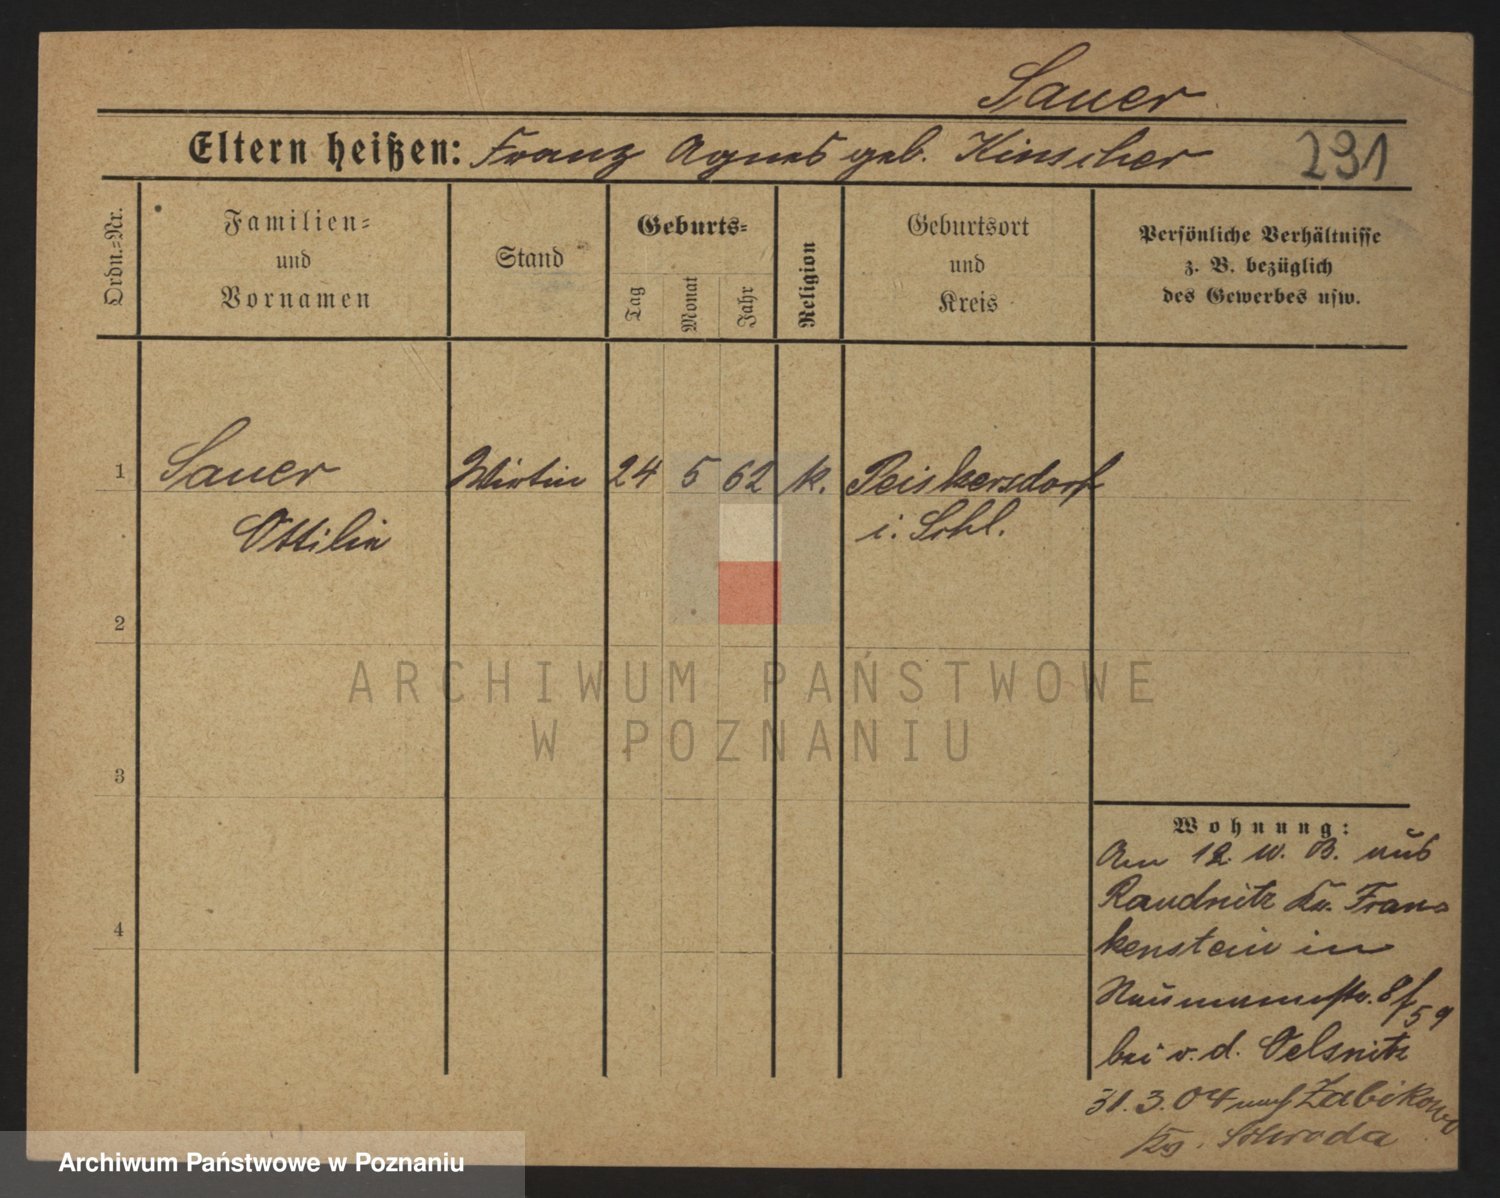 Sauer
Eltern heißen: Franz Agnes geb. Kinscher
291
Ordn.=Nr.
Familien=
und
Vornamen
Stand
Geburts=
Tag
Monat
Jahr
Religion
Geburtsort
und
Kreis
Persönliche Verhältnisse
z. B. bezüglich
des Gewerbes usw.
1
Sauer
Wirtin 24 5 62 k. Peiskersdorf
Ottilie
i. Schl.
2
3
4
ARCHIWUM PAŃSTWOWE
W POZNANIU
Wohnung:
Am 12. w. B. aus
Raudnitz Kr. Fran=
kenstein in
Naumannstr. 8
bei v. d. Oelsnitz
31.3.04 nach Zabikowo
Schroda
Archiwum Państwowe w Poznaniu